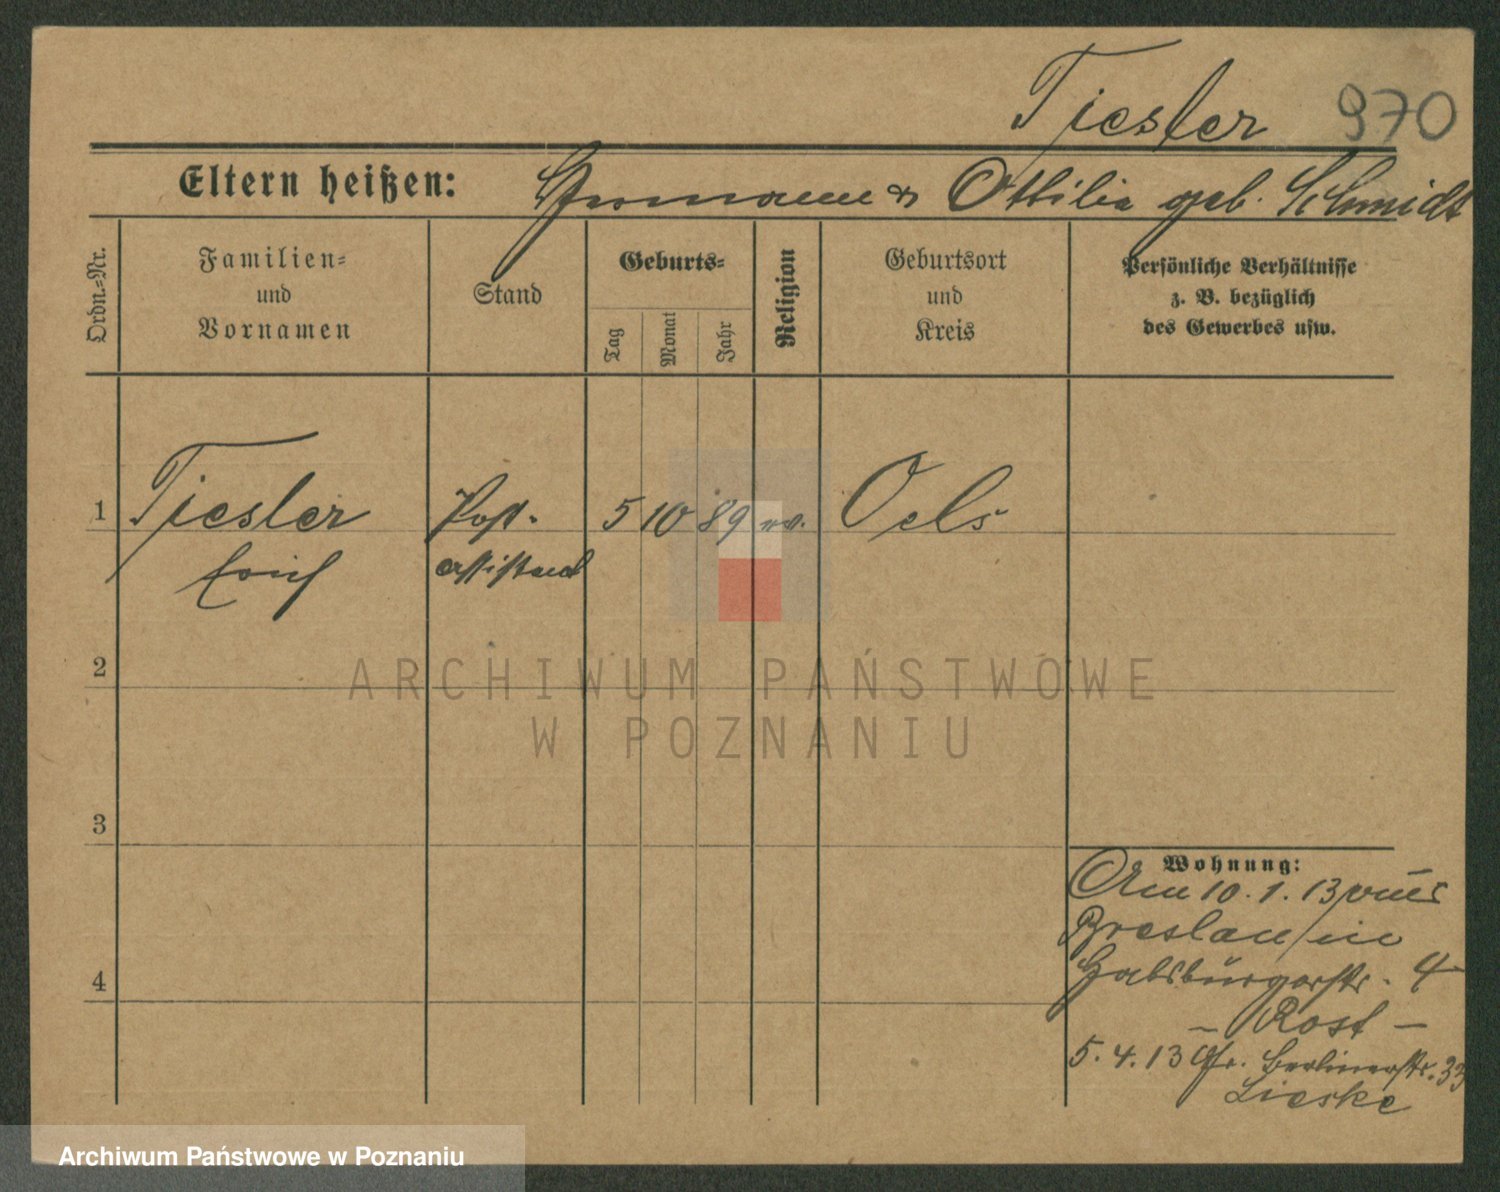 Tiesler 970
Eltern heißen: Hermann & Ottilie geb. Schmidt
Ordn.-Nr.
Familien-
und
Vornamen
Stand
Geburts-
Tag
Monat
Jahr
Religion
Geburtsort
und
Kreis
Persönliche Verhältnisse
z. B. bezüglich
des Gewerbes usw.
1 Tiesler Post- 5 10 89 ev. Oels
Erich assistent
2
3
4
Wohnung:
Am 10.1.13 aus
Breslau in
Habsburgerstr. 4
- Rost -
5.4.13 Gr. Berlinerstr. 33
Lieske
ARCHIWUM PAŃSTWOWE
W POZNANIU
Archiwum Państwowe w Poznaniu